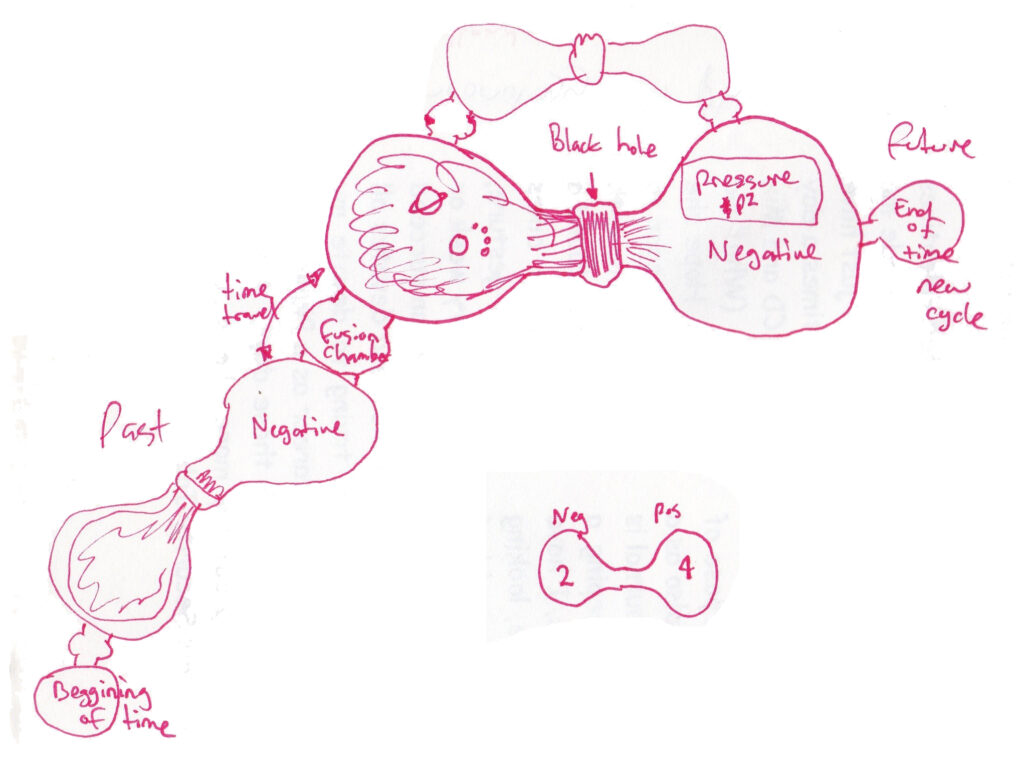 Black hole
Future
Pressure
P2
Negative
End
of
time
new
cycle
time
travel
Fusion
Chamber
Past
Negative
Neg
Pos
2
4
Beggining
of time